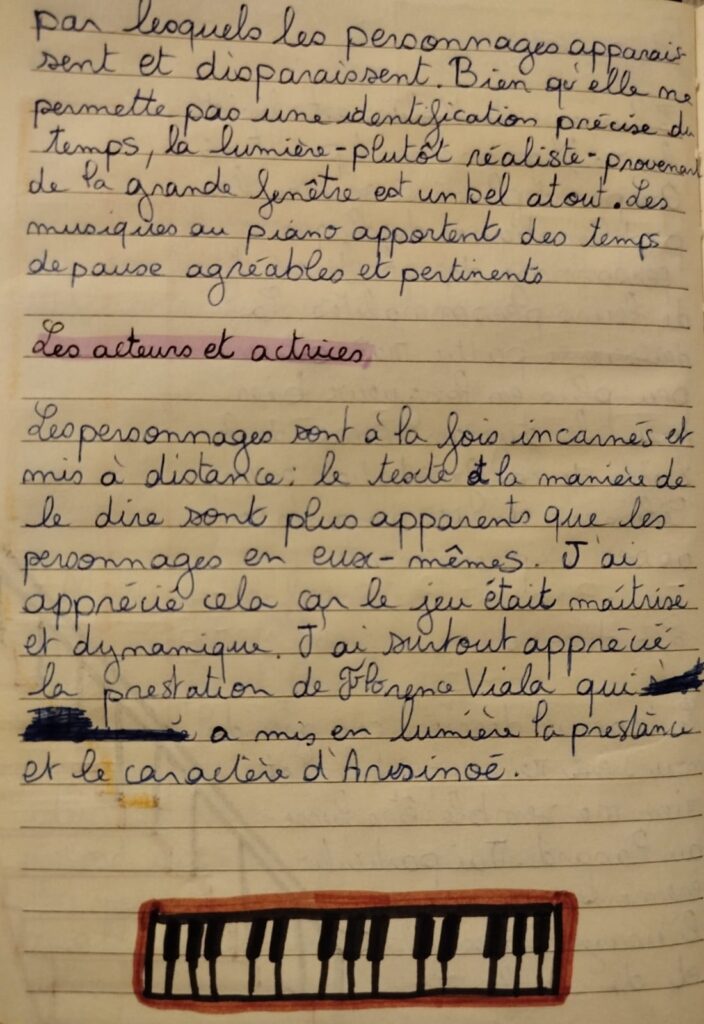 par lesquels les personnages apparais-
sent et disparaissent. Bien qu'elle ne
permette pas une identification précise du
temps, la lumière - plutôt réaliste - provenant
de la grande fenêtre est un bel atout. Les
musiques au piano apportent des temps
de pause agréables et pertinents
Les acteurs et actrices
Les personnages sont à la fois incarnés et
mis à distance : le texte et la manière de
le dire sont plus apparents que les
personnages en eux-mêmes. J'ai
apprécié cela car le jeu était maîtrisé
et dynamique. J'ai surtout apprécié
la prestation de Florence Viala qui
a mis en lumière la prestance
et le caractère d'Arsinoé.